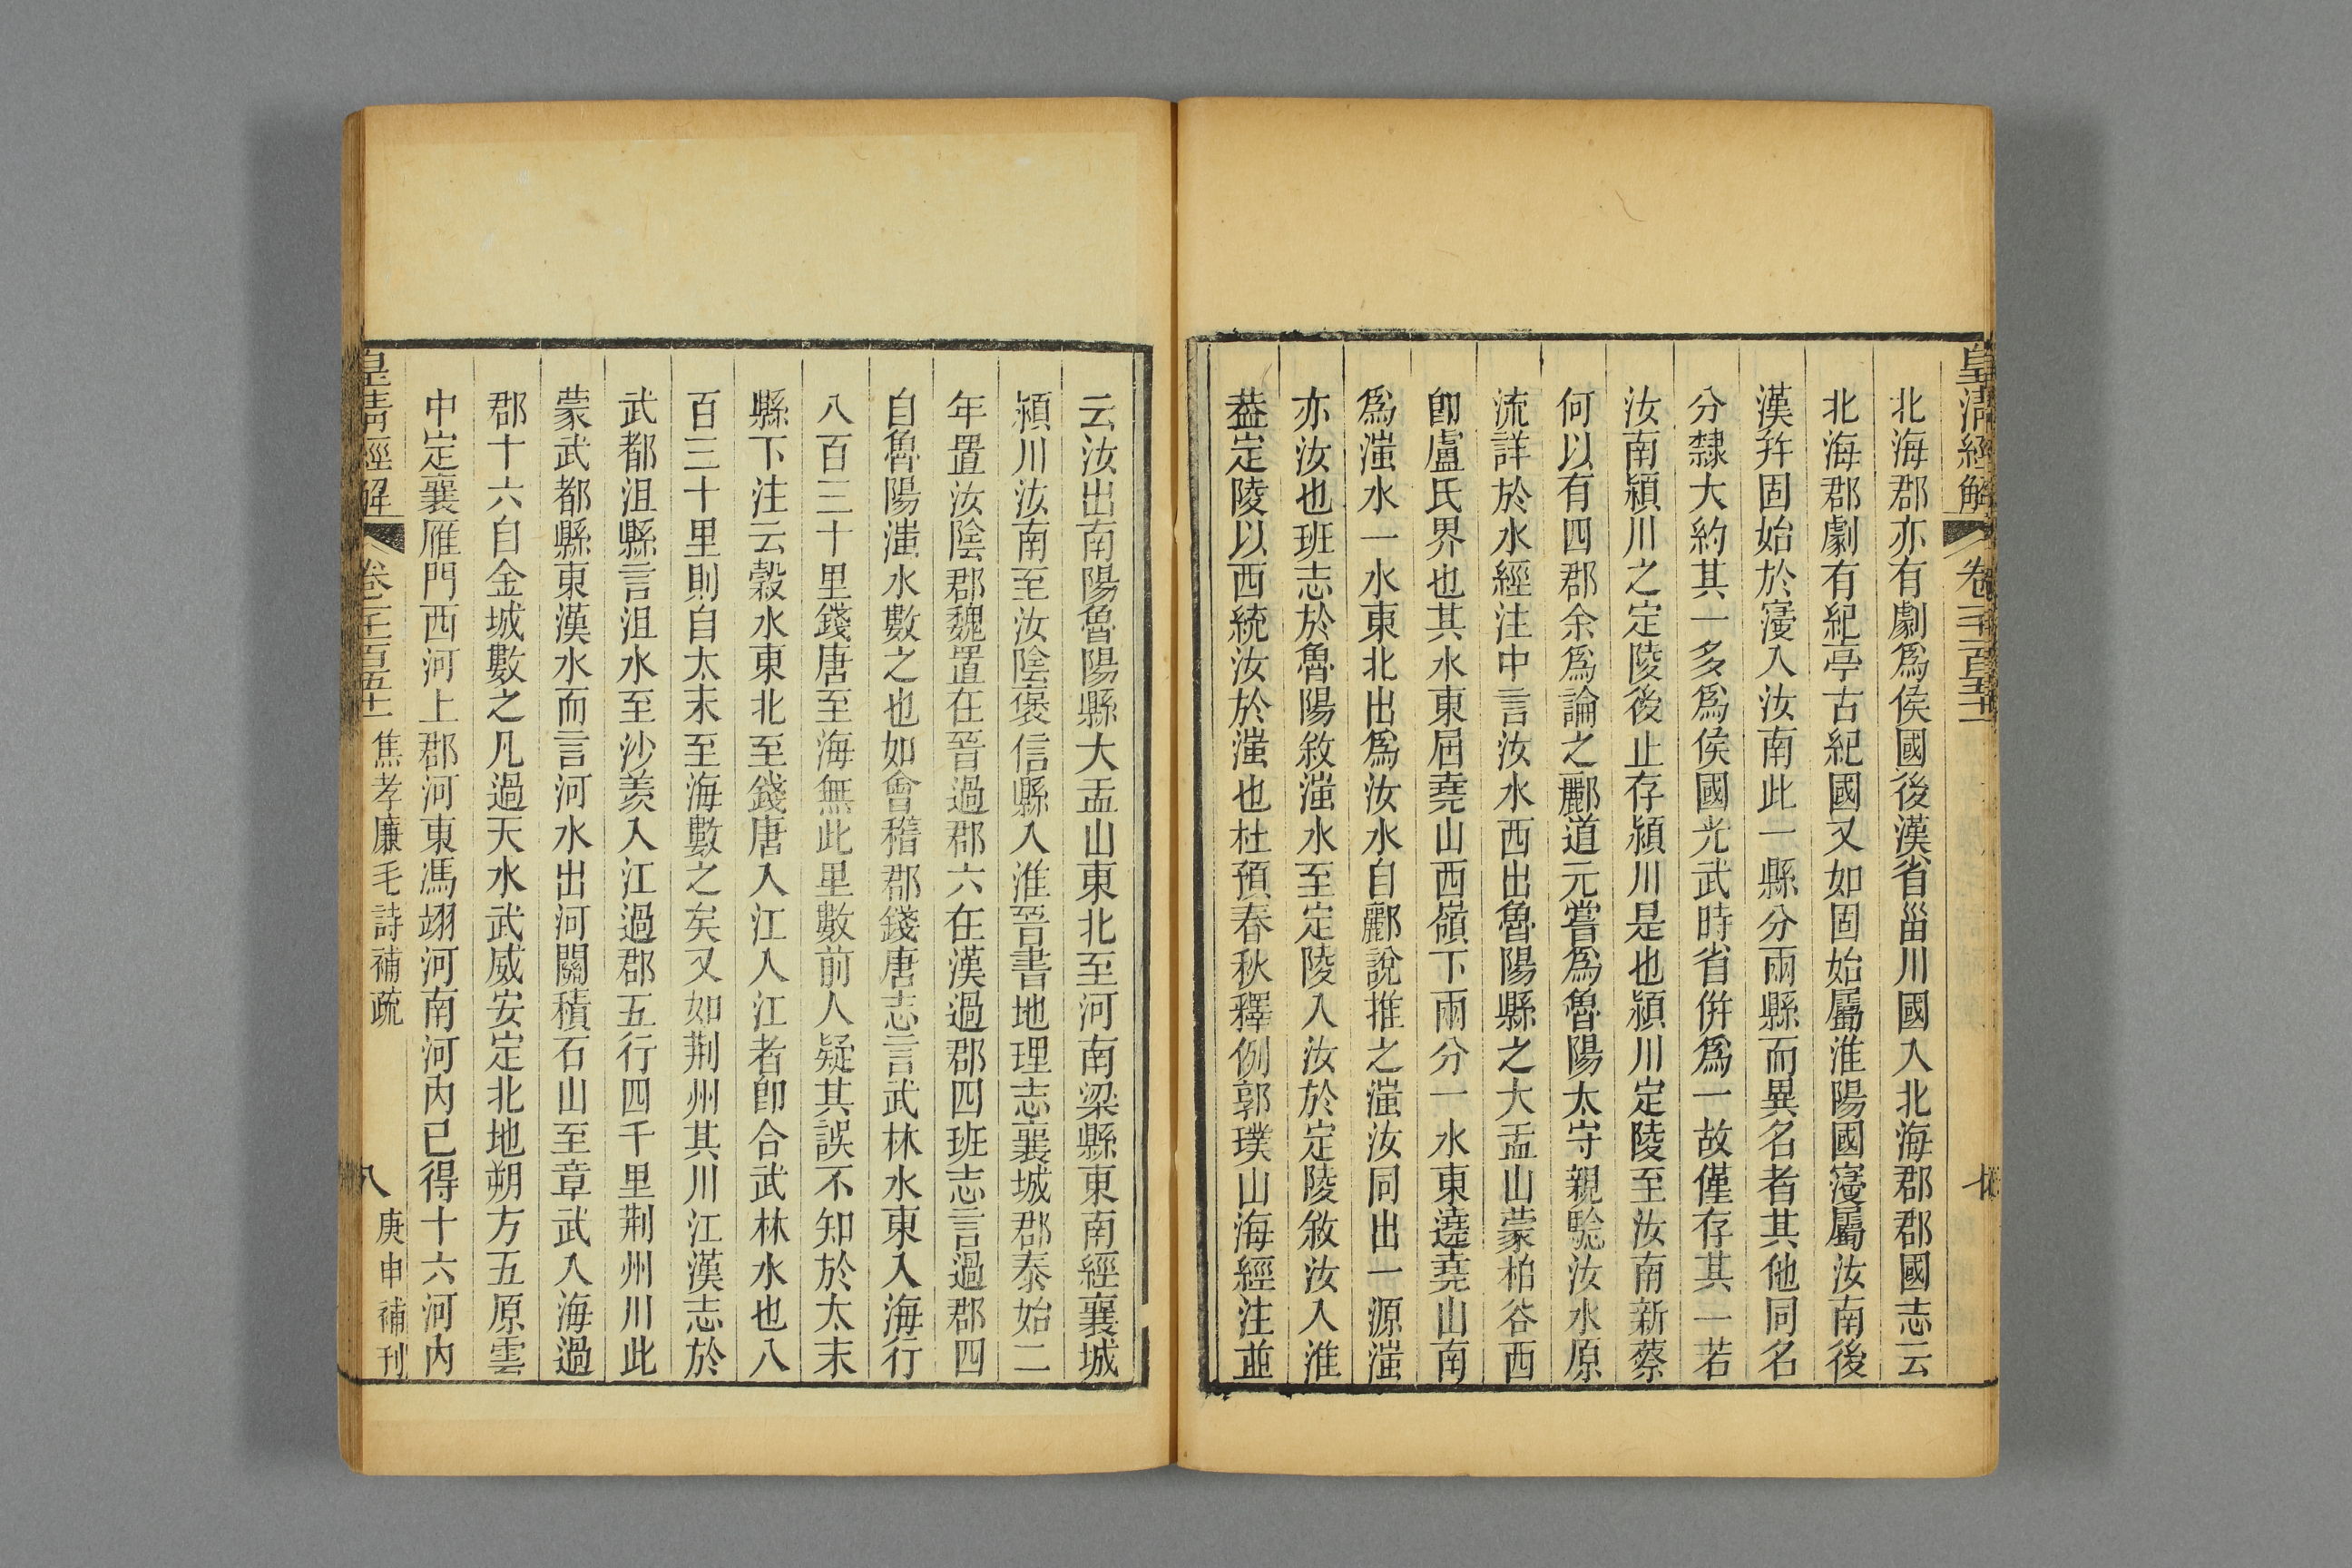 皇清經解
卷一千一百五十一
北海郡亦有劇爲侯國後漢省甾川國入北海郡郡國志云
北海郡劇有紀亭古紀國又如固始屬淮陽國寑屬汝南後
漢幷固始於寑入汝南此一縣分兩縣而異名者其他同名
分隸大約其一多爲侯國光武時省併爲一故僅存其一若
汝南潁川之定陵後止存潁川是也潁川定陵至汝南新蔡
何以有四郡余爲論之酈道元嘗爲魯陽太守親驗汝水原
流詳於水經注中言汝水西出魯陽縣之大盂山蒙柏谷西
卽盧氏界也其水東屆堯山西嶺下兩分一水東遶堯山南
爲滍水一水東北出爲汝水自酈說推之滍汝同出一源滍
亦汝也班志於魯陽敘滍水至定陵入汝於定陵敘汝入淮
葢定陵以西統汝於滍也杜預春秋釋例郭璞山海經注並
云汝出南陽魯陽縣大盂山東北至河南梁縣東南經襄城
潁川汝南至汝陰褒信縣入淮晉書地理志襄城郡泰始二
年置汝陰郡魏置在晉過郡六在漢過郡四班志言過郡四
自魯陽滍水數之也如會稽郡錢唐志言武林水東入海行
八百三十里錢唐至海無此里數前人疑其誤不知於太末
縣下注云穀水東北至錢唐入江入江者卽合武林水也八
百三十里則自太末至海數之矣又如荆州其川江漢志於
武都沮縣言沮水至沙羨入江過郡五行四千里荆州川此
蒙武都縣東漢水而言河水出河關積石山至章武入海過
郡十六自金城數之凡過天水武威安定北地朔方五原雲
中定襄雁門西河上郡河東馮翊河南河內已得十六河內
皇清經解
卷一千一百五十一
焦孝廉毛詩補疏
八
庚申補刊